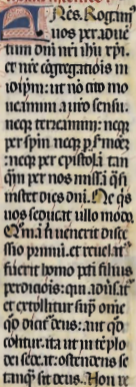 Fr̄es. Rogam⁹
uos per aduē
tum dn̄i nr̄i ih̄u xp̄i
et nr̄e ꝯgregatiōis in
id ip̄m: ut nō cito mo
ueamini a ur̄o sensu.
neq̄ terreamini: neq̄
per sp̄m neq̄ p̱ smōez
neq̄ per epistolā tan
q̄m per nos missā q̄si
instet dies dn̄i. Ne q̄s
uos seducat ullo modo.
Qm̄ nisi uenerit disces
sio primū. et reuelat⁹
fuerit homo pcc̄i filius
perdicōis: qui aduīsat̄
et extollitur sup̄ om̄e
q̄d dicit̄ deus: aut q̄d
colitur. ita ut in tēplo
dei sedeat: ostendens se
tamq̄ sit deus. Non